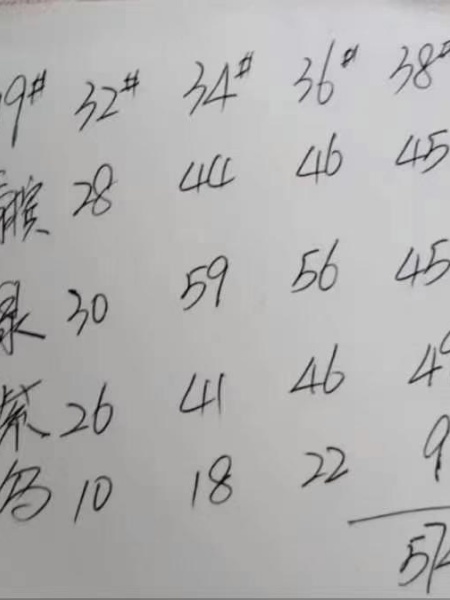 9# 32# 34# 36# 38#
28 44 46 45
30 59 56 45
紫 26 41 46 4
10 18 22 9
57